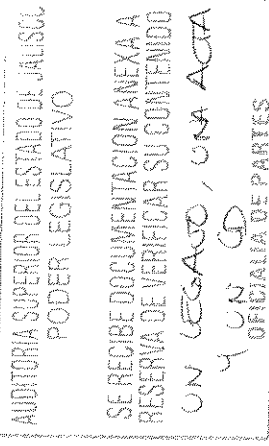 AUDITORIA SUPERIOR DEL ESTADO DE JALISCO
PODER LEGISLATIVO
SE RECIBE DOCUMENTACION ANEXA A
RESERVA DE VERIFICAR SU CONTENIDO
UN LEGAJO, UNA ACTA
Y UN CD
OFICIALIA DE PARTES